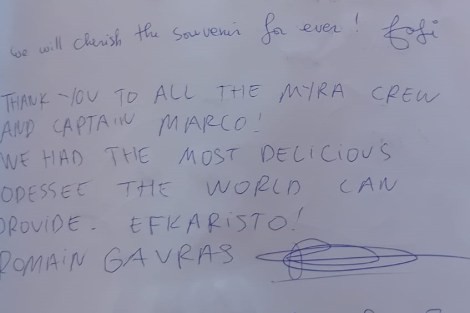 we will cherish the souvenir for ever!
THANK-YOU TO ALL THE MYRA CREW
AND CAPTAIN MARCO!
WE HAD THE MOST DELICIOUS
ODESSEE THE WORLD CAN
PROVIDE. EFKARISTO!
ROMAIN GAVRAS